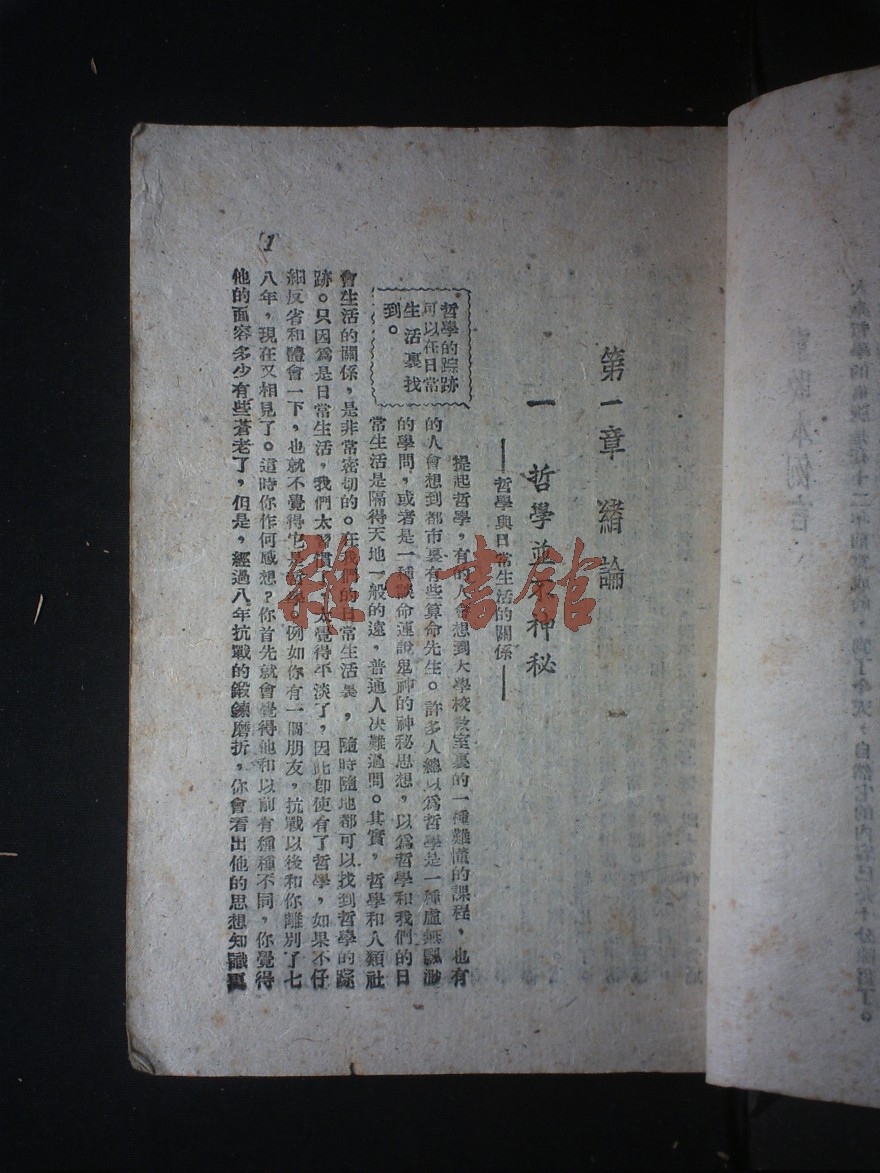 第一章 緒論
一 哲學並不神秘
——哲學與日常生活的關係——
哲學的踪跡
可以在日常
生活裏找
到。
提起哲學，有的人會想到大學校教室裏的一種難懂的課程，也有
的人會想到都市裏有些算命先生。許多人總以為哲學是一種虛無飄渺
的學問，或者是一種談命運說鬼神的神秘思想，以為哲學和我們的日
常生活是隔得天地一般的遠，普通人決難過問。其實，哲學和人類社
會生活的關係，是非常密切的。在我們的日常生活裏，隨時隨地都可以找到哲學的踪
跡。只因為是日常生活，我們太習慣了，太覺得平淡了，因此卽使有了哲學，如果不仔
細反省和體會一下，也就不覺得它是哲學。例如你有一個朋友，抗戰以後和你離別了七
八年，現在又相見了。這時你作何感想？你首先就會覺得他和以前有種種不同，你覺得
他的面容多少有些蒼老了，但是，經過八年抗戰的鍛鍊磨折，你會看出他的思想知識裏
1
雜·書館
本例言